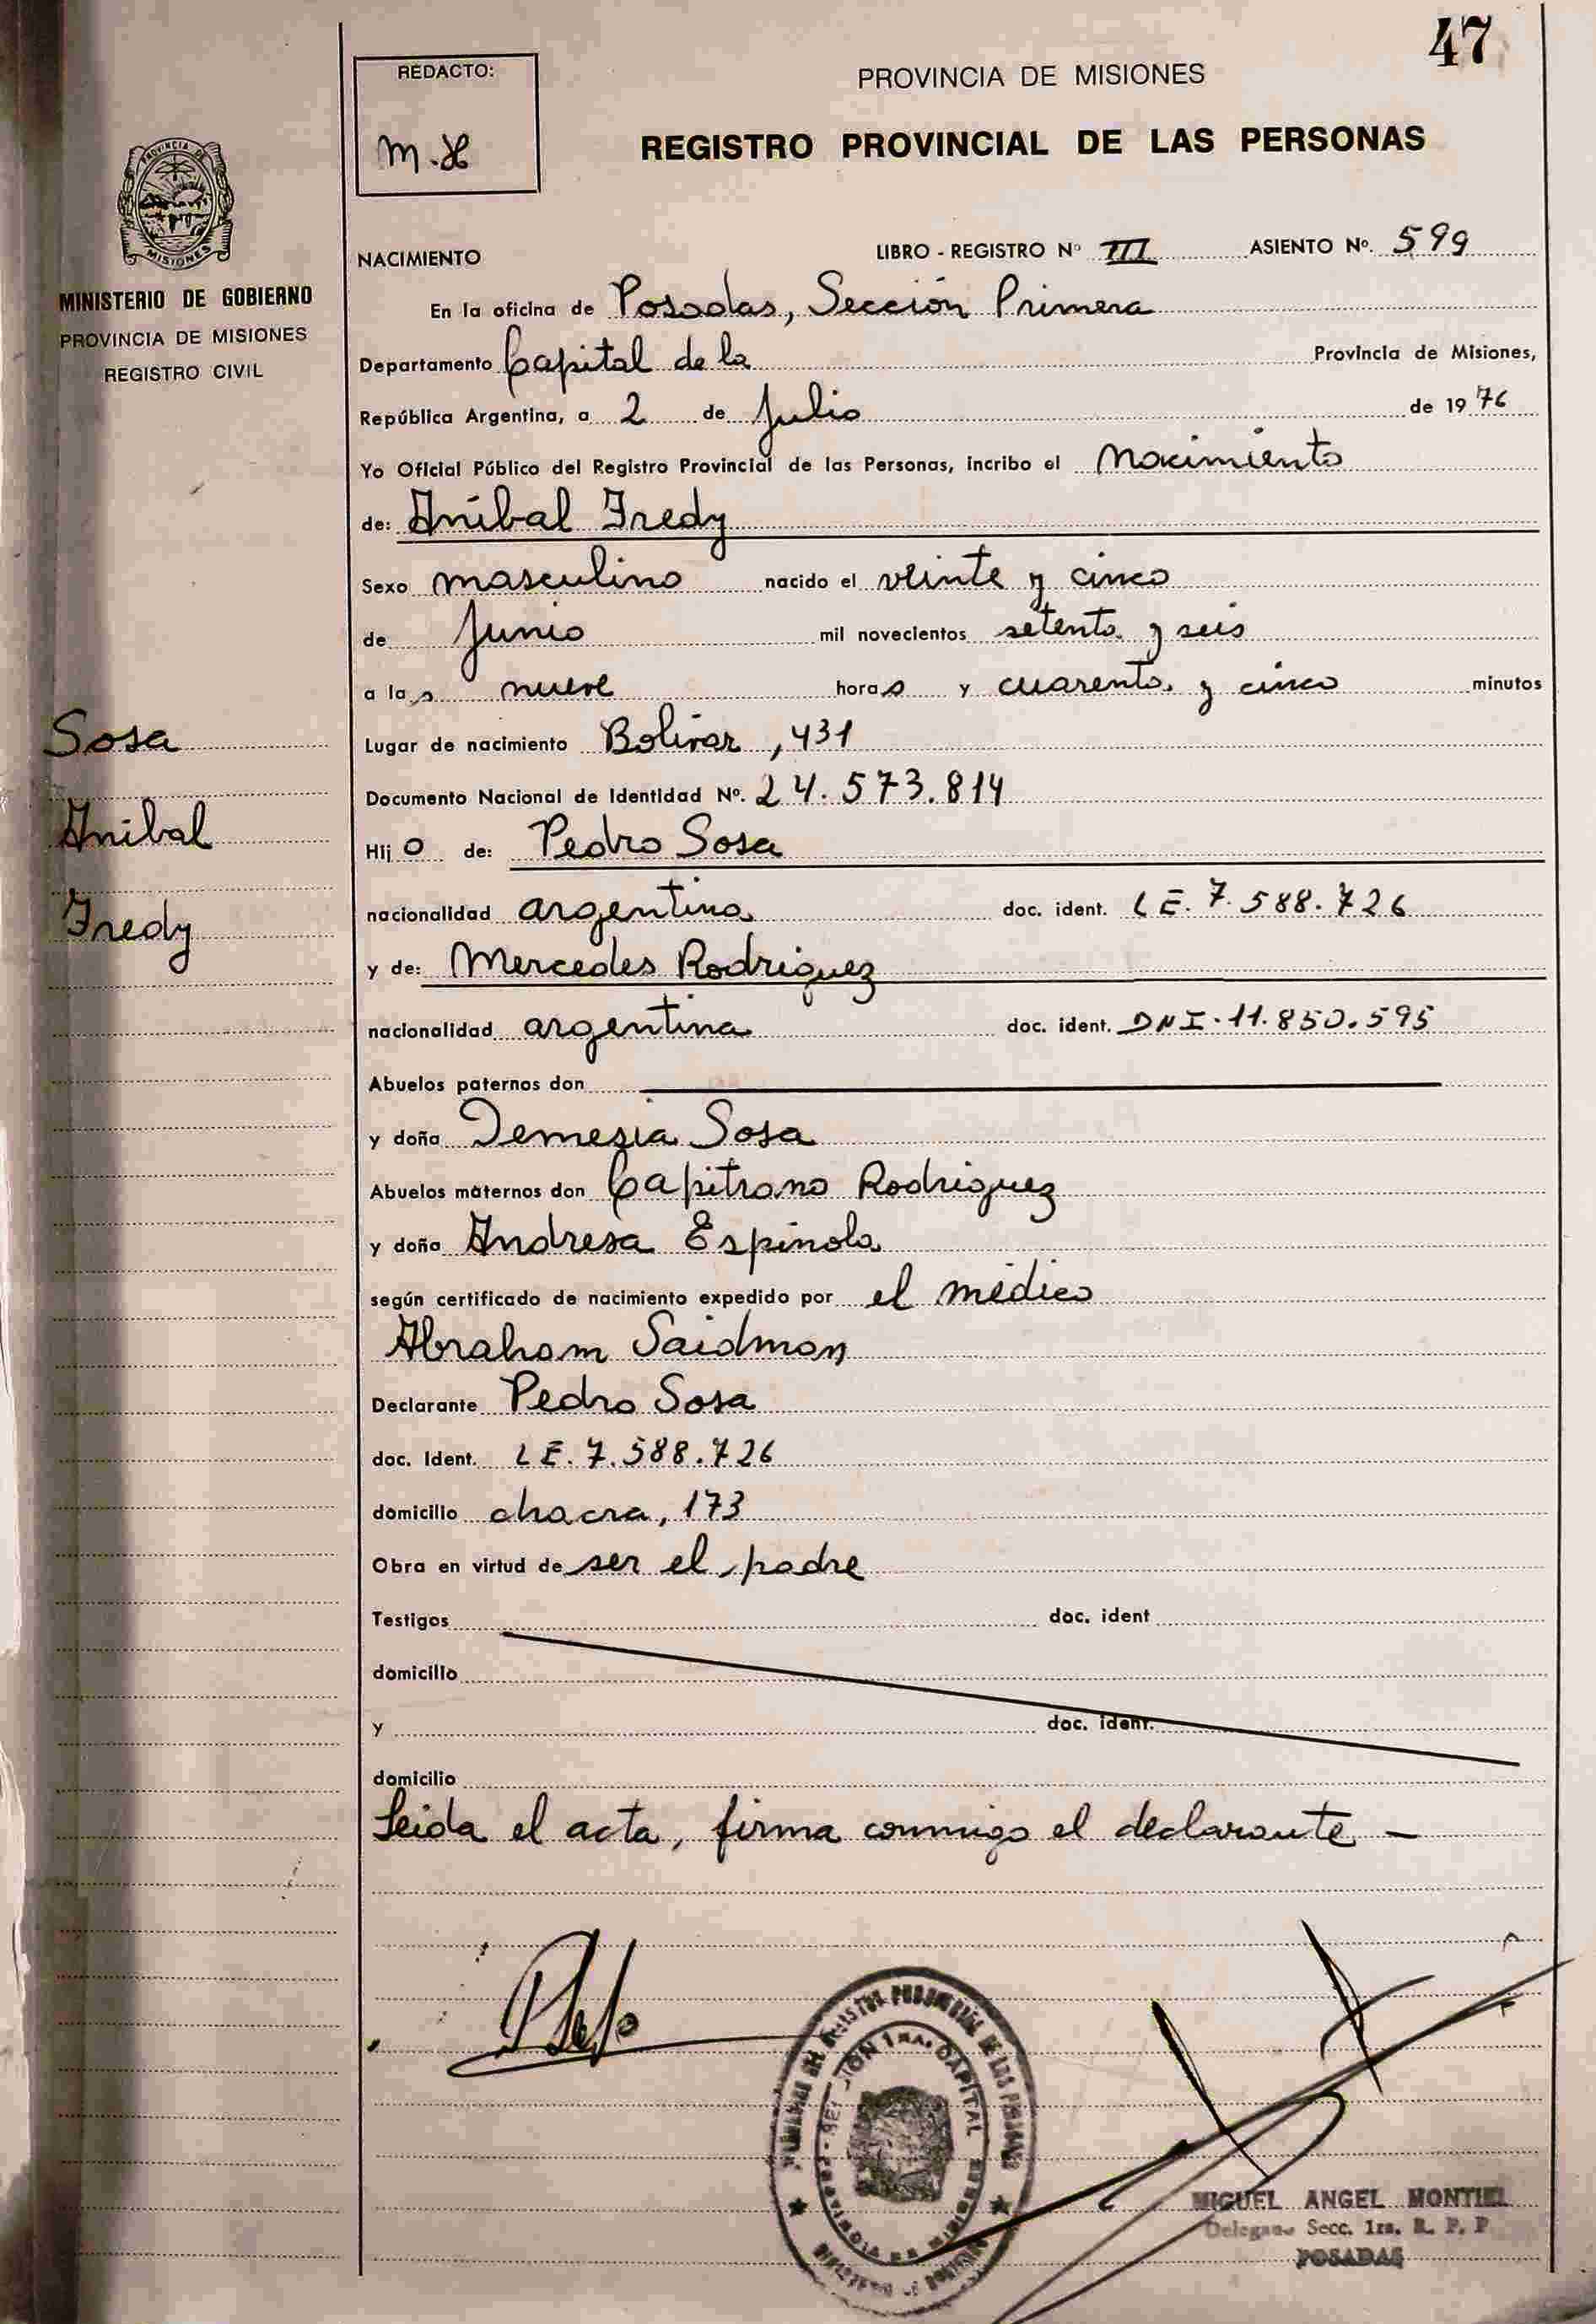 47
REDACTO:
PROVINCIA DE MISIONES
REGISTRO PROVINCIAL DE LAS PERSONAS
PROVINCIA DE
MISIONES
MINISTERIO DE GOBIERNO
PROVINCIA DE MISIONES
REGISTRO CIVIL
NACIMIENTO LIBRO - REGISTRO Nº III ASIENTO Nº. 599
En la oficina de Posadas, Sección Primera
Departamento Capital de la Provincia de Misiones,
República Argentina, a 2 de Julio de 1976
Yo Oficial Público del Registro Provincial de las Personas, incribo el Nacimiento
de: Aníbal Fredy
Sexo masculino nacido el veinte y cinco
de Junio mil novecientos setenta y seis
a las nueve horas y cuarenta y cinco minutos
Lugar de nacimiento Bolivar, 431
Documento Nacional de Identidad Nº. 24.573.814
Sosa
Anibal
Fredy
Hijo de: Pedro Sosa
nacionalidad argentina doc. ident. LE. 7.588.726
y de: Mercedes Rodriguez
nacionalidad argentina doc. ident. DNI. 11.850.595
Abuelos paternos don
y doña Demesia Sosa
Abuelos maternos don Rodriguez
y doña Andresa Espinola
según certificado de nacimiento expedido por el médico
Abraham Saidman
Declarante Pedro Sosa
doc. Ident. LE. 7.588.726
domicilio chacra, 173
Obra en virtud de ser el padre
Testigos doc. ident
domicilio
y doc. ident.
domicilio
Leida el acta, firma conmigo el declarante -
MIGUEL ANGEL MONTIEL
Secc. 1ra. R. P. P
POSADAS